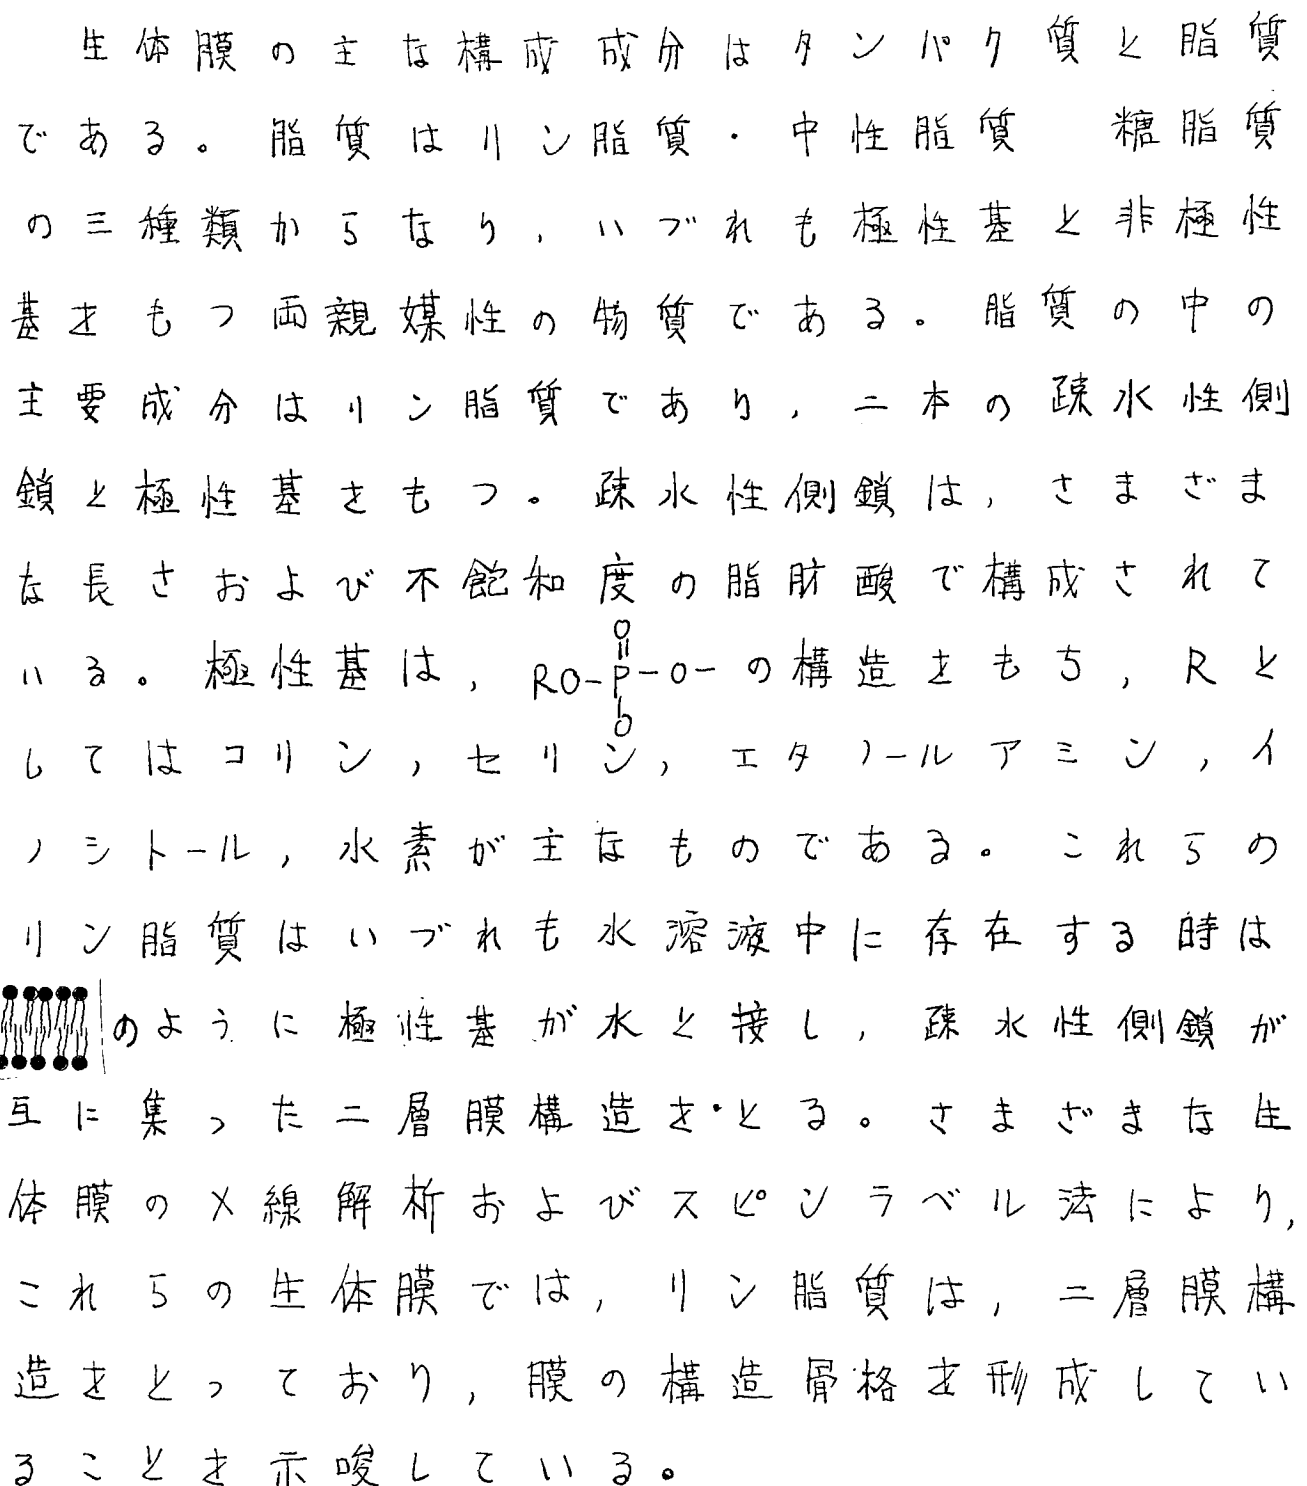 生体膜の主な構成成分はタンパク質と脂質
である。脂質はリン脂質・中性脂質 糖脂質
の三種類からなり,いづれも極性基と非極性
基をもつ両親媒性の物質である。脂質の中の
主要成分はリン脂質であり,二本の疎水性側
鎖と極性基をもつ。疎水性側鎖は,さまざま
な長さおよび不飽和度の脂肪酸で構成されて
いる。極性基は,RO-P(=O)(-O)-O-の構造をもち,Rと
してはコリン,セリン,エタノールアミン,イ
ノシトール,水素が主なものである。これらの
リン脂質はいづれも水溶液中に存在する時は
のように極性基が水と接し,疎水性側鎖が
互に集った二層膜構造をとる。さまざまな生
体膜のX線解析およびスピンラベル法により,
これらの生体膜では,リン脂質は,二層膜構
造をとっており,膜の構造骨格を形成してい
ることを示唆している。